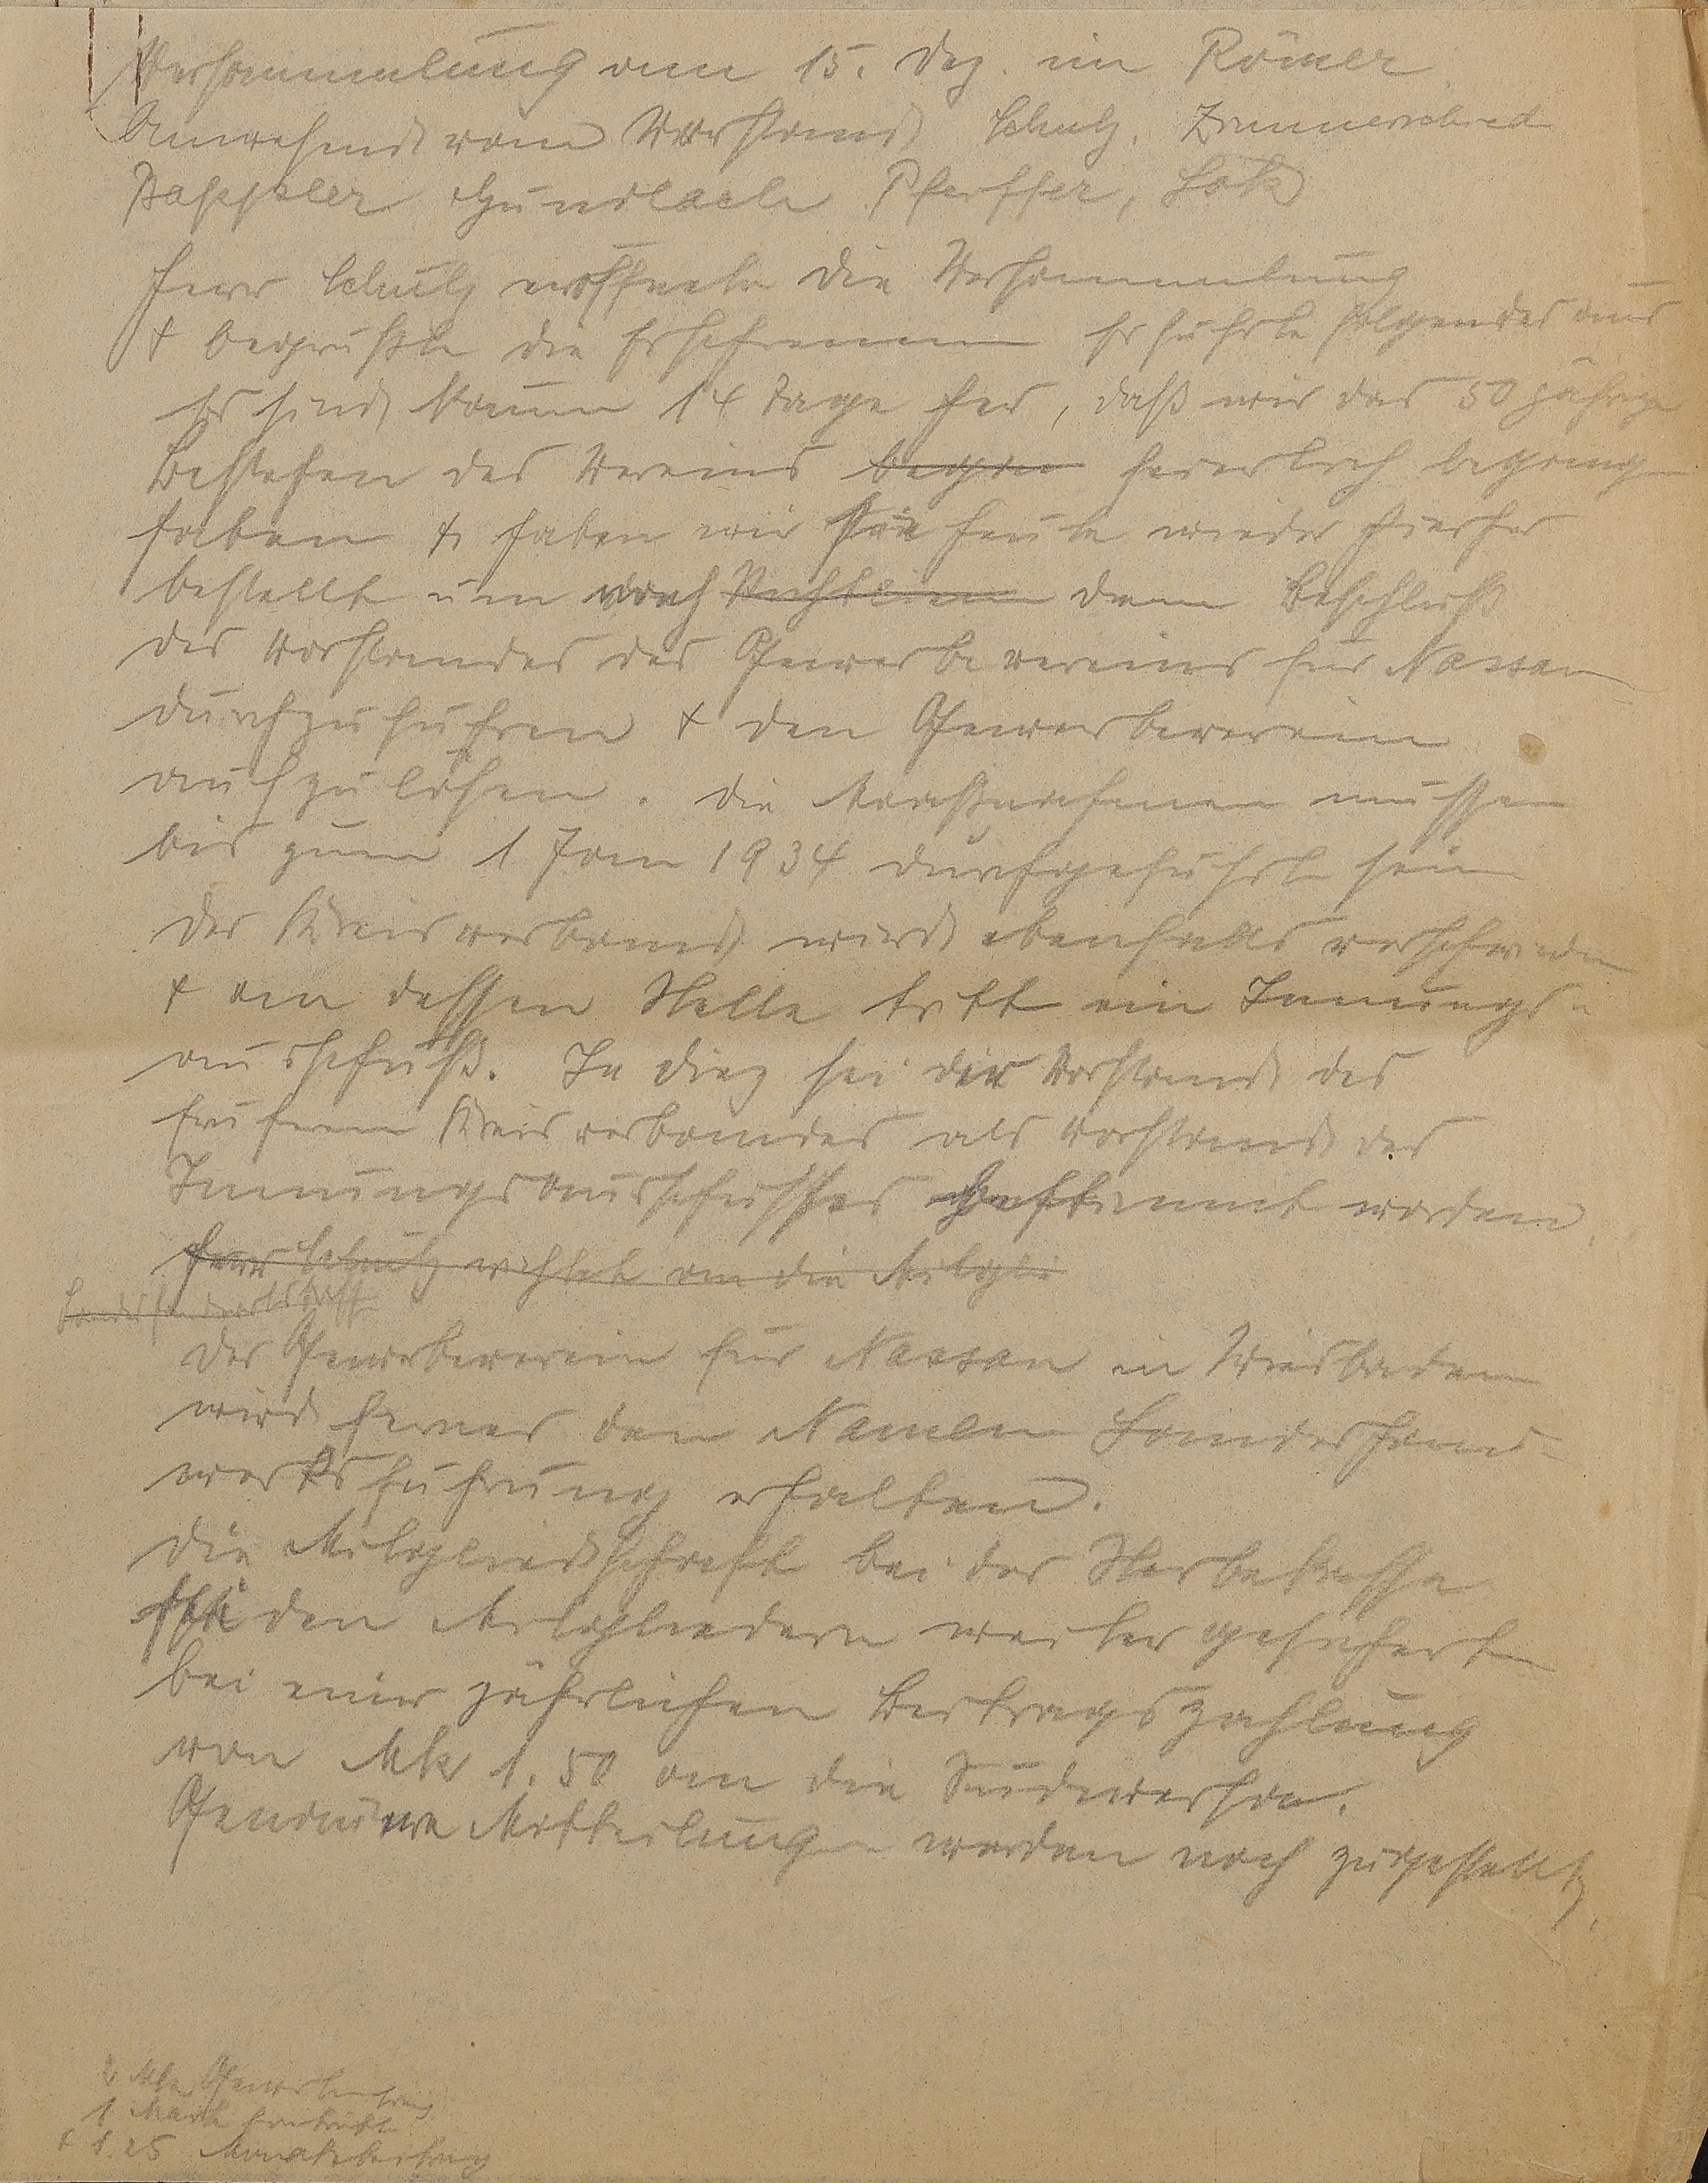 Versammlung am 15. Dez. im Römer
Anwesend vom Vorstand Schulz, Zimmerschied
Kappler Gundlach Pfeiffer, Loth
Herr Schulz eröffnete die Versammlung
& begrüßte die Erschienenen Er führte folgendes aus
Es sind kaum 14 Tage her, daß wir das 50 jährige
Bestehen des Vereins began feierlich begangen
haben & haben wir Sie heute wieder hierher
bestellt um nach Richtlinien dem Beschluß
des Vorstandes des Gewerbevereins für Nassau
durchzuführen & den Gewerbeverein
aufzulösen. Die Maßnahmen müssen
bis zum 1 Jan 1934 durchgeführt sein
Der Kreisverband wird ebenfalls verschwinden
& an dessen Stelle tritt ein Innungs-
ausschuß. In Diez sei der Vorstand des
früheren Kreisverbandes als Vorstand des
Innungsausschusses bestimmt worden.
Herr Schulz richtet an die Mitglie
Landeshandwerkschaft
Der Gewerbeverein für Nassau in Wiesbaden
wird ferner den Namen Landeshand-
werksführung erhalten.
Die Mitgliedschaft bei der Sterbekasse
sei den Mitgliedern weiter gesichert
bei einer jährlichen Beitragszahlung
von Mk 1.50 an die
Genauere Mitteilungen werden noch zugestellt.
2 Mk
1 Mark Eintritt
& 1.25 Monatsbeitrag